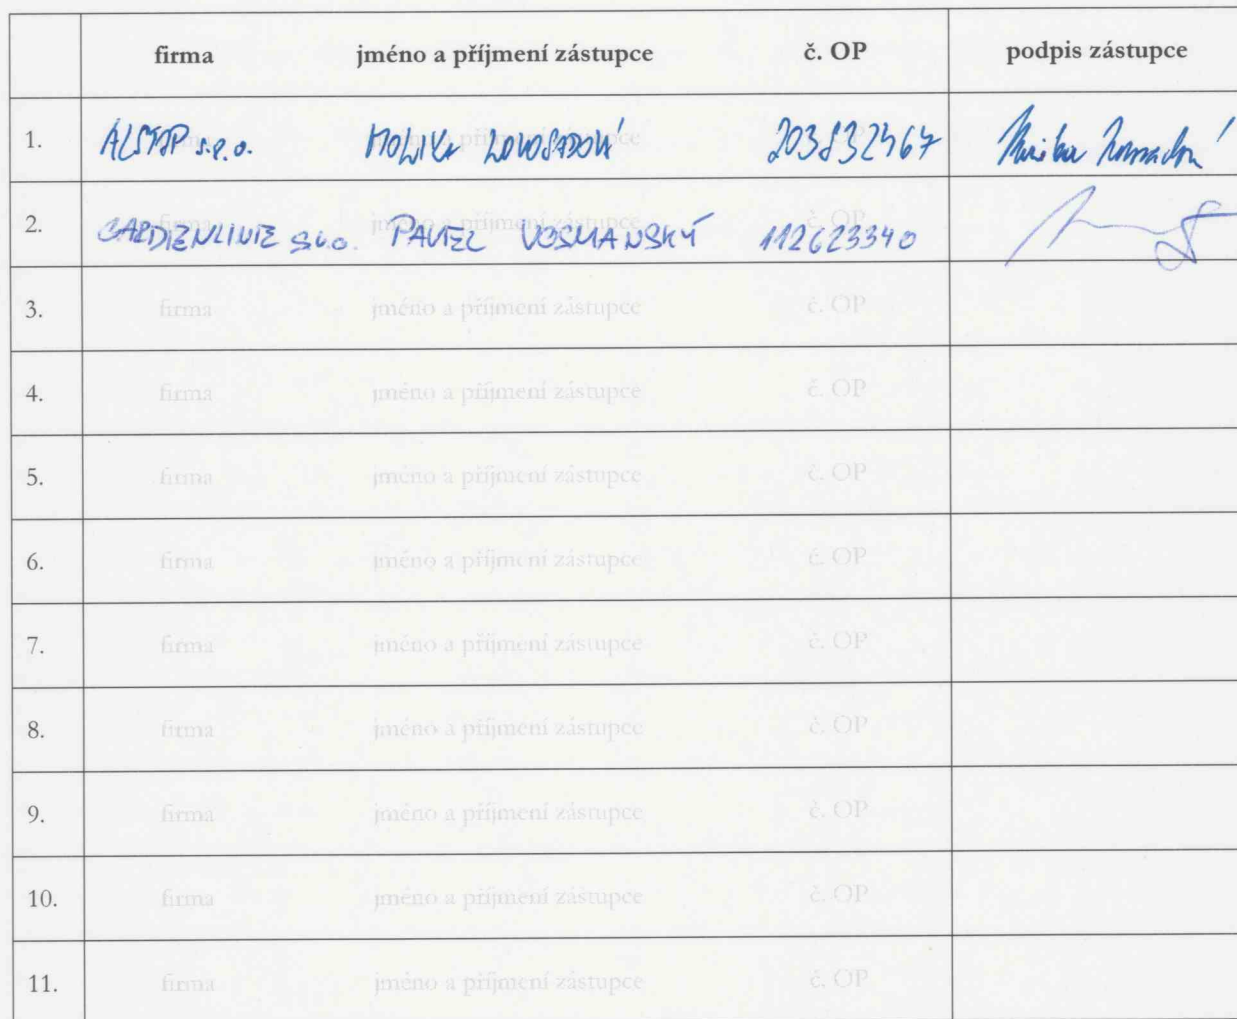 firma jméno a příjmení zástupce č. OP podpis zástupce
1. ALSTAP s.r.o. MONIKA NOVOSADOVÁ 203832467
2. s.r.o. PAVEL VOSMANSKÝ 112623340
3. firma jméno a příjmení zástupce č. OP
4. firma jméno a příjmení zástupce č. OP
5. firma jméno a příjmení zástupce č. OP
6. firma jméno a příjmení zástupce č. OP
7. firma jméno a příjmení zástupce č. OP
8. firma jméno a příjmení zástupce č. OP
9. firma jméno a příjmení zástupce č. OP
10. firma jméno a příjmení zástupce č. OP
11. firma jméno a příjmení zástupce č. OP